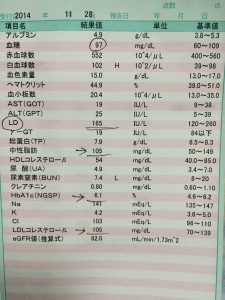 受付 2014 年 11 28 報告日 年 月 日
項目名 結果値 単位 基準値
アルブミン 4.9 g/dL 3.8～5.3
血糖 97 mg/dL 60～109
赤血球数 552 10^4/μL 400～560
白血球数 102 H 10^2/μL 39～98
血色素量 15.0 g/dL 13.0～17.0
ヘマトクリット 44.9 % 39.0～51.0
血小板数 20.4 10^4/μL
AST(GOT) 19 IU/L
ALT(GPT) 25 IU/L
LD 165 IU/L 120～260
γーGT 19 IU/L 84以下
総蛋白(TP) 7.9 g/dL 6.5～8.3
中性脂肪 105 mg/dL 50～149
HDLコレステロール 54 mg/dL 40.0～85.0
尿酸(UA) 4.9 mg/dL 3.4～7.0
尿素窒素(BUN) 7.4 L mg/dL 8～20
クレアチニン 0.80 mg/dL 0.60～1.10
HbA1c(NGSP) 6.1 % 4.6～6.2
Na 141 mEq/L 135～147
K 4.2 mEq/L 3.6～5.0
Cl 103 mEq/L 96～110
LDLコレステロール 105 mg/dL 70～139
eGFR値(推算式) 82.0 mL/min/1.73m^2